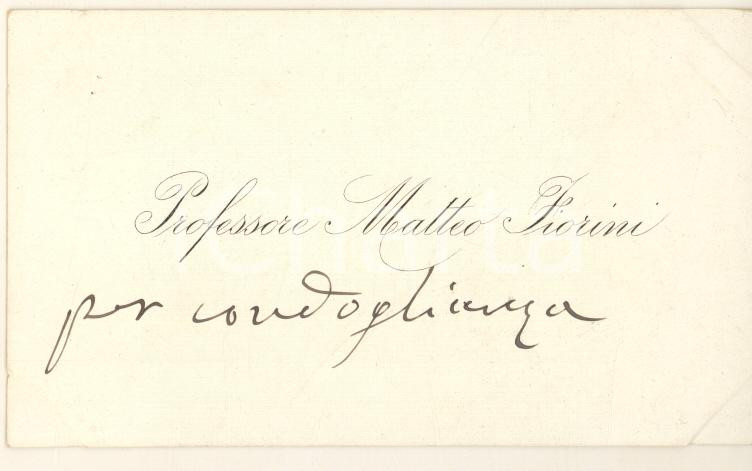 Professore Matteo Fiorini
per condoglianza